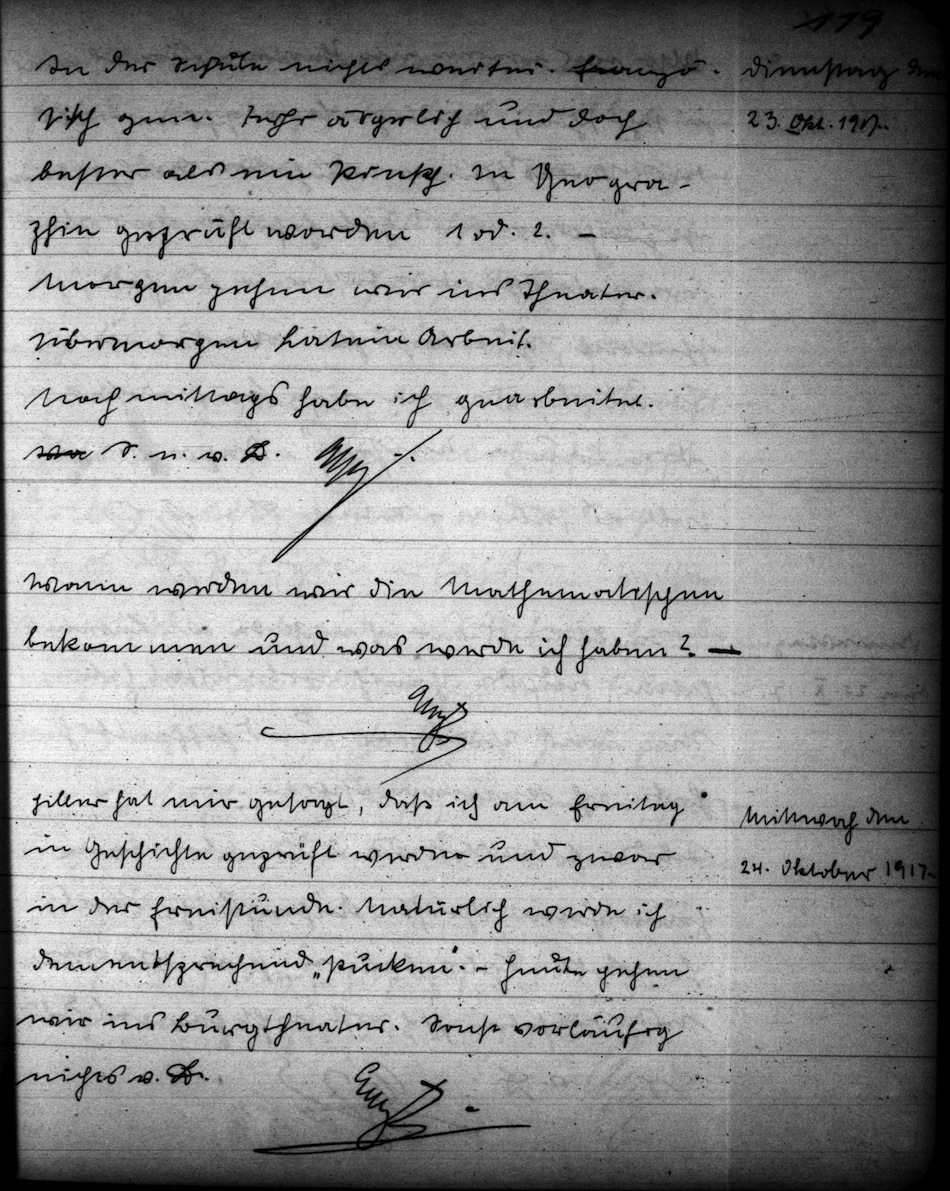 119
In der Schule nichts weiter. Franzö-
Dienstag den
sisch gen. sehr ärgerlich und doch
23. Okt. 1917.
besser als ein Pintsch. In Geogra-
phie geprüft worden 1 od. 2. –
Morgen gehen wir ins Theater.
Übermorgen Latein Arbeit.
Nachmittags habe ich gearbeitet.
S. n. v. B.
Wann werden wir die Mathematischen
bekommen und was werde ich haben? –
Hiller hat mir gesagt, daß ich am Freitag
Mittwoch den
in Geschichte geprüft werde und zwar
24. Oktober 1917.
in der Freistunde. Natürlich werde ich
dementsprechend „pucken“. – Heute gehen
wir ins Burgtheater. Sonst vorläufig
nichts v. B.